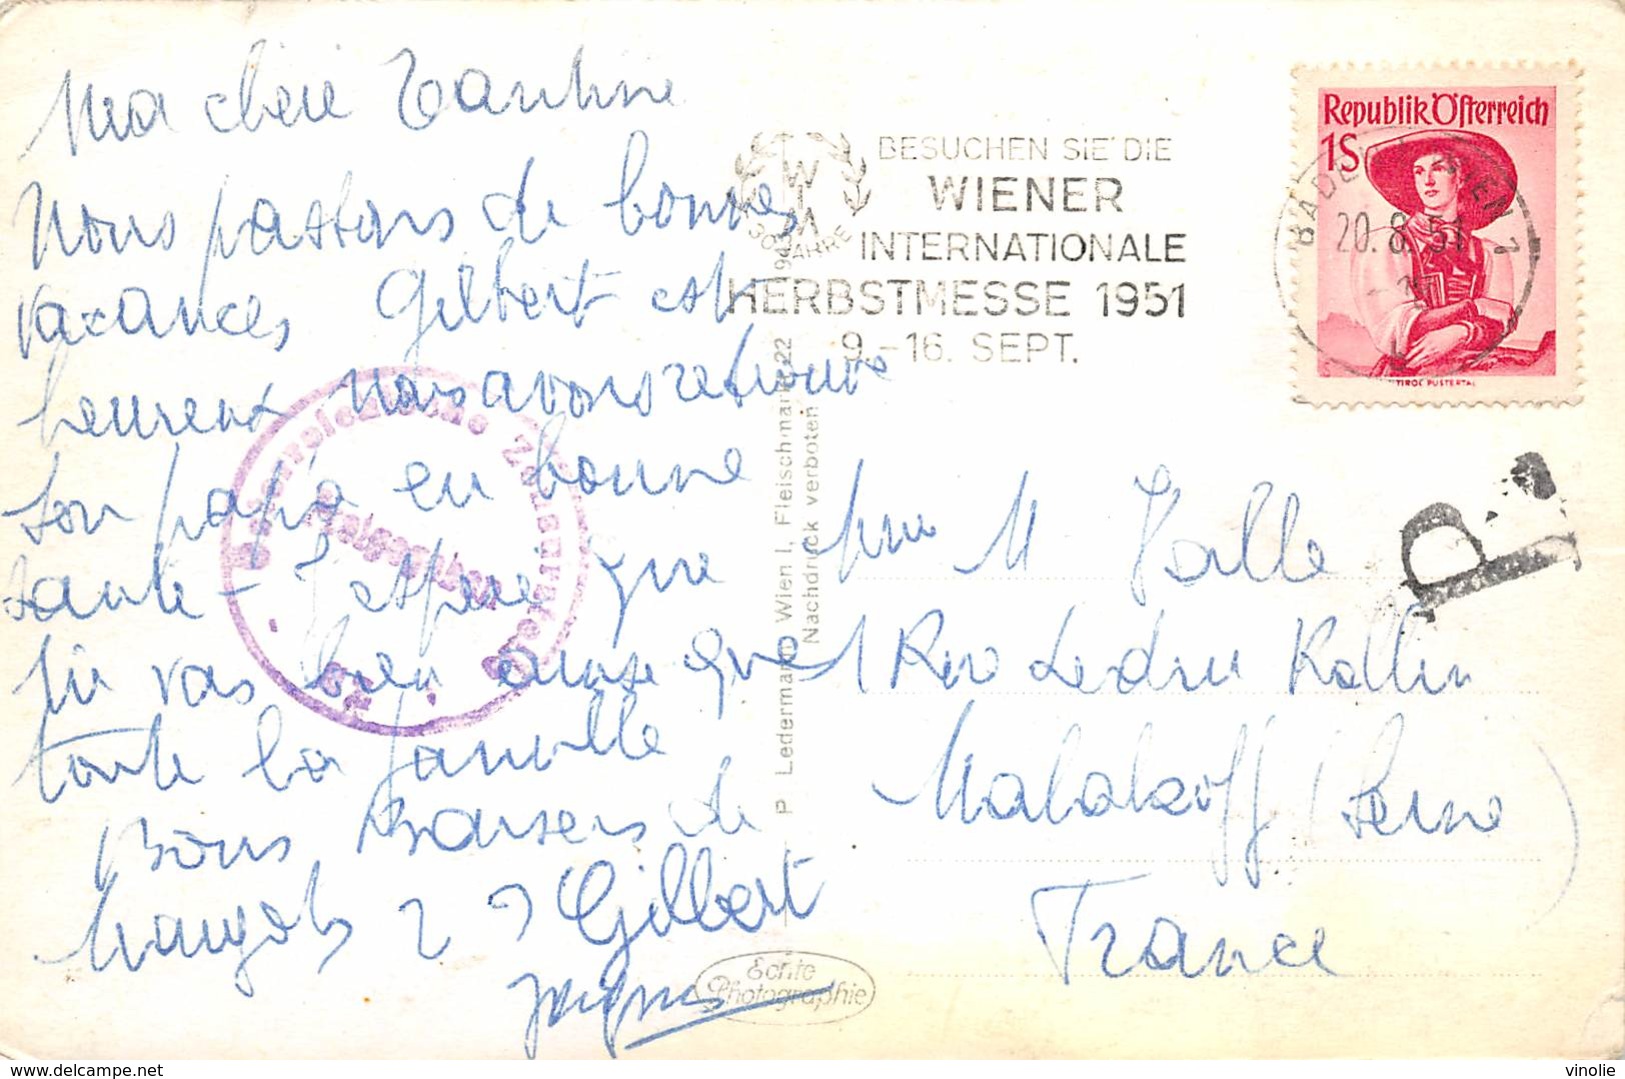 Ma chere Tantine
Nous passons de bonnes
vacances Gilbert est
heureux Nous avons retrouvé
son papa en bonne
santé - J'espère que
tu vas bien ainsi que
toute la famille
Bons Baisers de
Margot Gilbert
Jacques
BESUCHEN SIE DIE
WIENER
INTERNATIONALE
HERBSTMESSE 1951
9.-16. SEPT.
WIM
30 JAHRE
Republik Österreich
1S
TIROL PUSTERTAL
BADEN WIEN 1
20.8.51
Österreichische Zensurstelle
P. Ledermann, Wien I, Fleischmarkt 22
Nachdruck verboten
Echte
Photographie
M Valle
1 Rue Ledru Rollin
Malakoff (Seine)
France
delcampe.net
vinolie